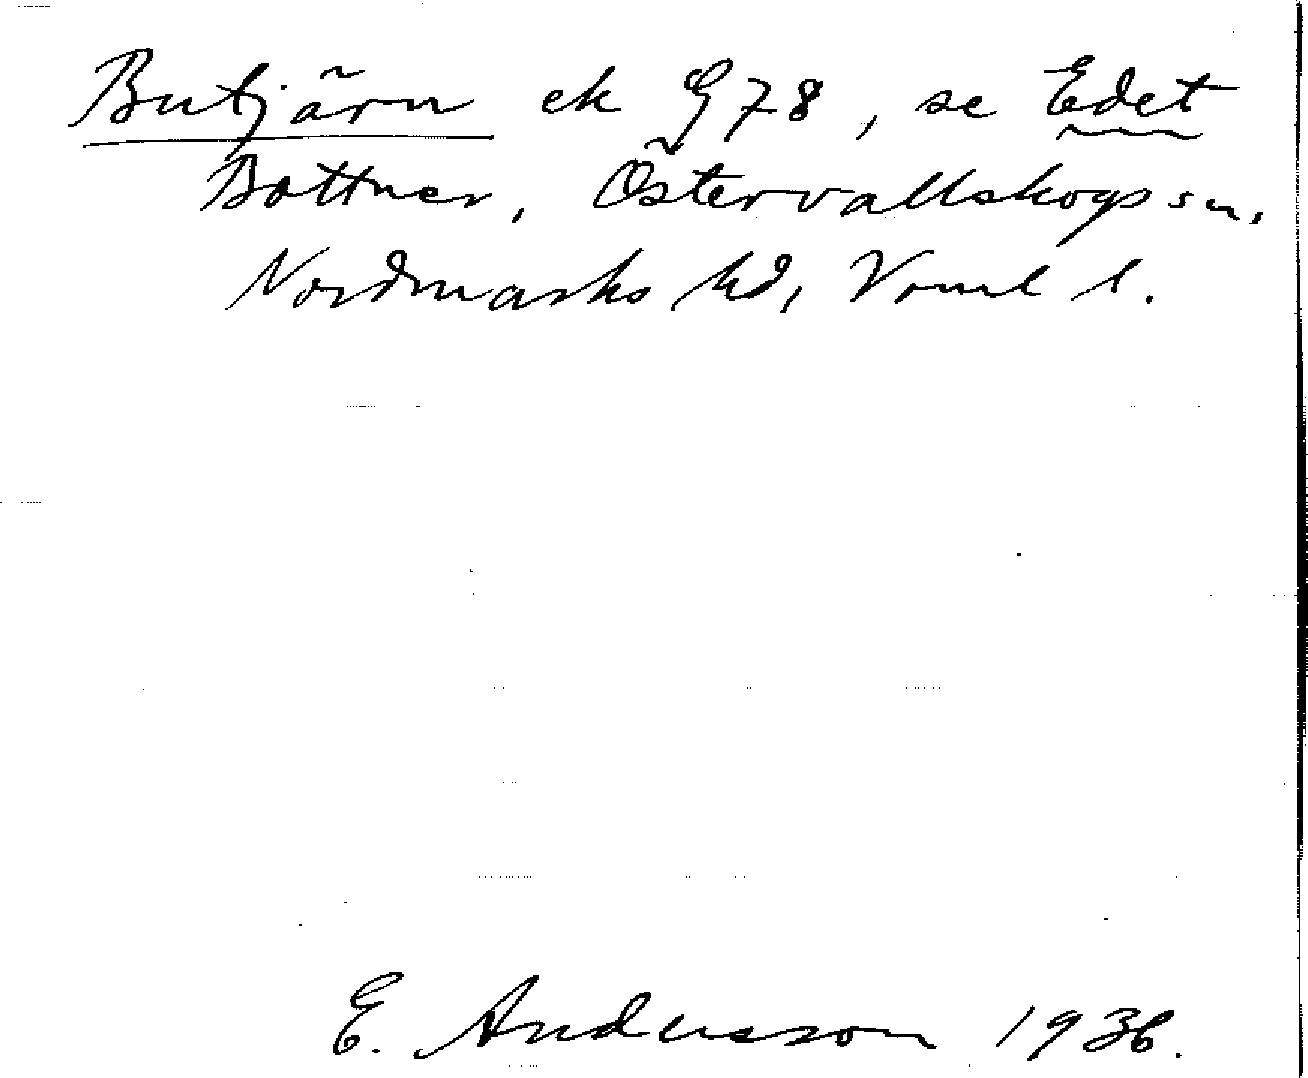 Butjärn ek G78, se Edet
Bottner, Östervallskogs sn,
Nordmarks hd, Vrml l.
E. Andersson 1936.